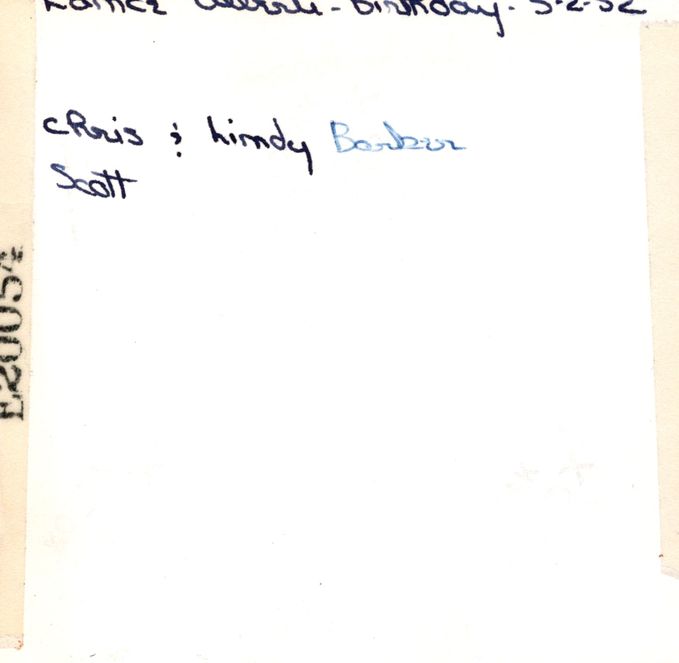 Birthday - 5-2-52
Chris & Lindy Barker
Scott
E20054